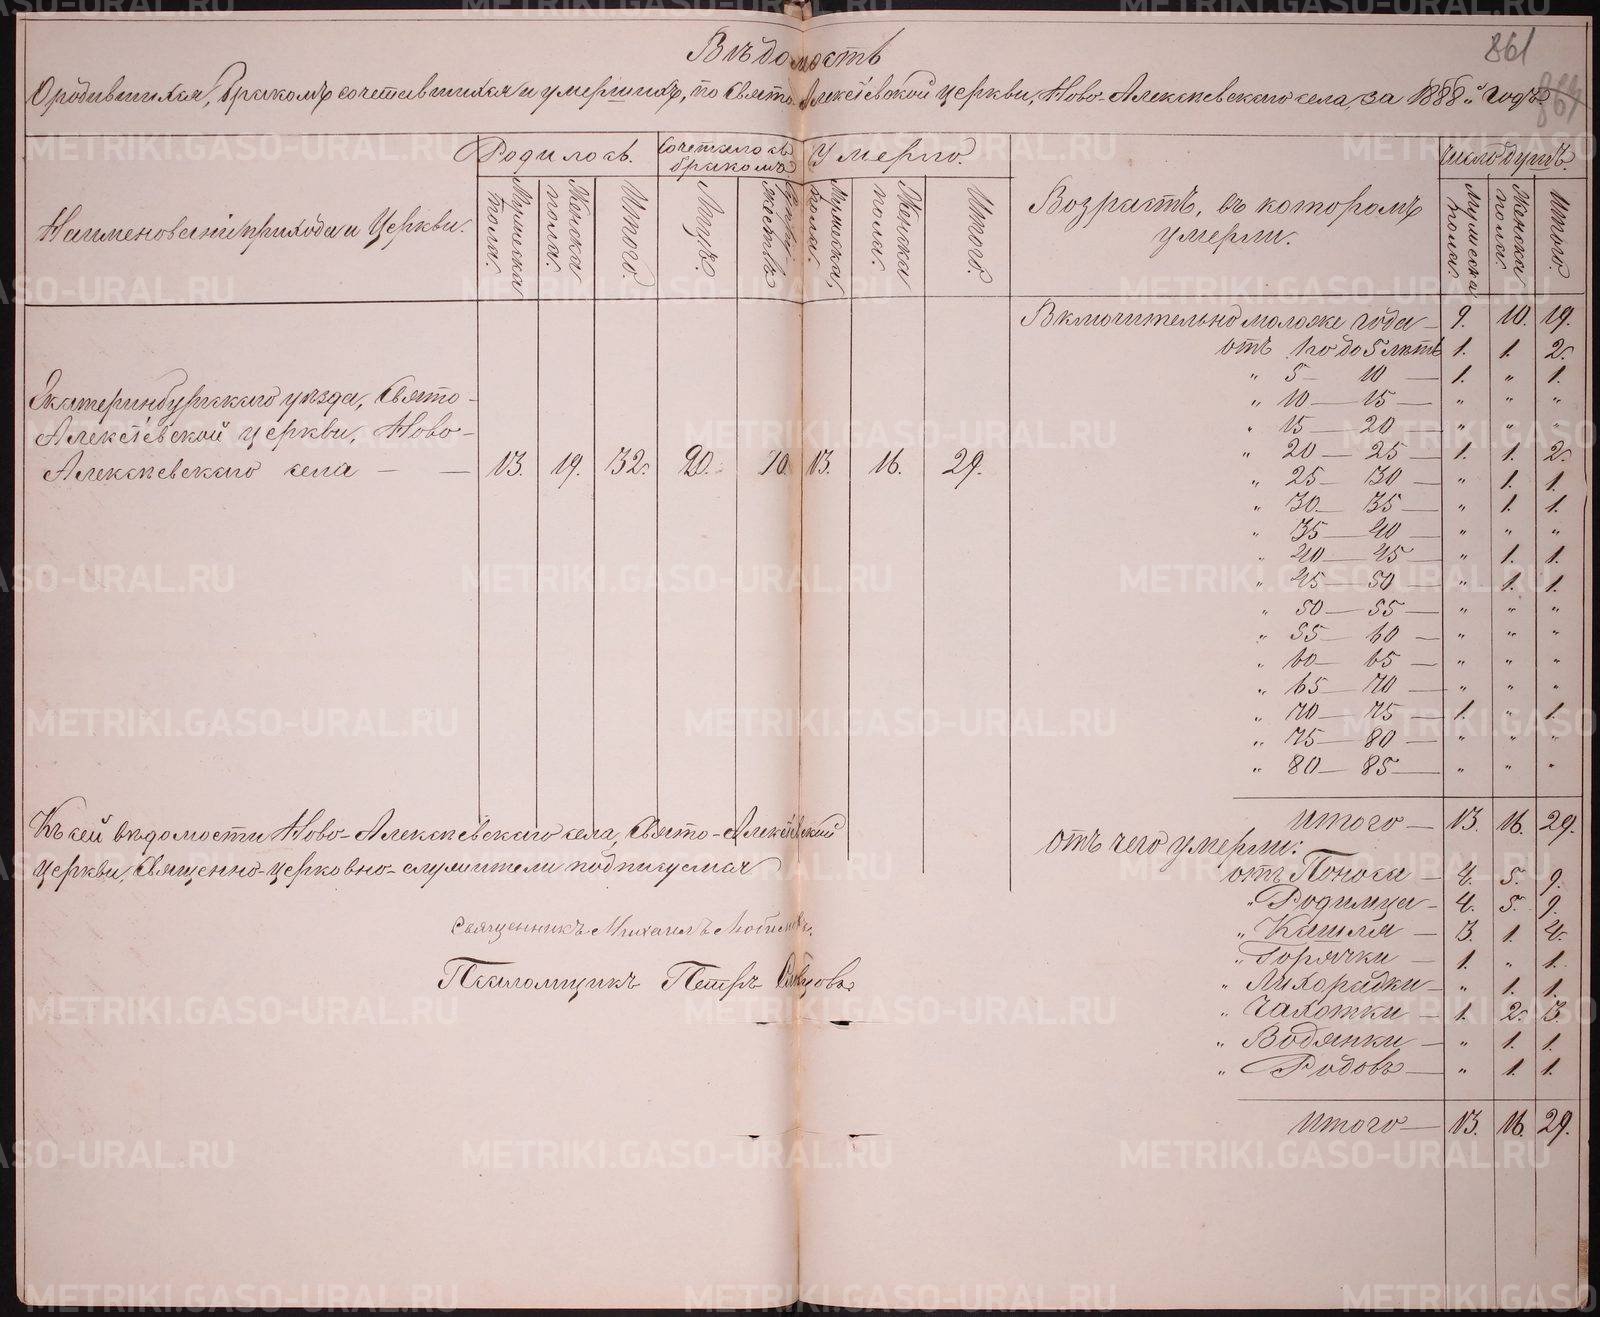 861
Вѣдомость
О родившихся, бракомъ сочетавшихся и умершихъ, по Свято-Алексіевской церкви, Ново-Алексѣевскаго села, за 1888й годъ
Наименованіе прихода и Церкви.
Родилось.
Мужеска пола.
Женска пола.
Итого.
Сочеталось бракомъ.
Лицъ.
Умерло.
Мужеска пола.
Женска пола.
Итого.
Возрастъ, въ которомъ умерли.
Число душъ.
Мужеска пола.
Женска пола.
Итого.
Екатеринбургскаго уѣзда, Свято-
Алексіевской церкви, Ново-
Алексѣевскаго села — — 13. 19. 32. 20. 10. 13. 16. 29.
Включительно моложе года — 9. 10. 19.
отъ 1го до 5 лѣтъ 1. 1. 2.
„ 5 — 10 — 1. „ 1.
„ 10 — 15 — „ „ „
„ 15 — 20 — „ „ „
„ 20 — 25 — 1. 1. 2.
„ 25 — 30 — „ 1. 1.
„ 30 — 35 — „ 1. 1.
„ 35 — 40 — „ „ „
„ 40 — 45 — „ 1. 1.
„ 45 — 50 — „ 1. 1.
„ 50 — 55 — „ „ „
„ 55 — 60 — „ „ „
„ 60 — 65 — „ „ „
„ 65 — 70 — „ „ „
„ 70 — 75 — 1. „ 1.
„ 75 — 80 — „ „ „
„ 80 — 85 — „ „ „
Итого — 13. 16. 29.
Отъ чего умерли:
отъ Поноса — 4. 5. 9.
„ Родимца — 4. 5. 9.
„ Кашля — 3. 1. 4.
„ Горячки — 1. „ 1.
„ Лихорадки — „ 1. 1.
„ Чахотки — 1. 2. 3.
„ Водянки — „ 1. 1.
„ Родовъ — „ 1. 1.
Итого — 13. 16. 29.
Къ сей вѣдомости Ново-Алексѣевскаго села, Свято-Алексіевской
церкви, Священно-церковно-служители подписуемся
Священникъ Михаилъ
Псаломщикъ Петръ
METRIKI.GASO-URAL.RU